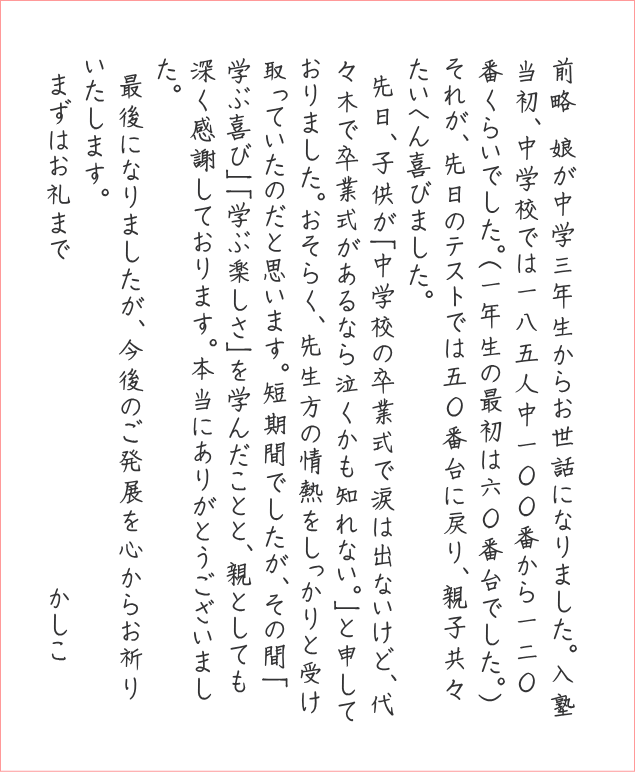 前略　娘が中学三年生からお世話になりました。入塾
当初、中学校では一八五人中一〇〇番から一二〇
番くらいでした。(一年生の最初は六〇番台でした。)
それが、先日のテストでは五〇番台に戻り、親子共々
たいへん喜びました。
　先日、子供が「中学校の卒業式で涙は出ないけど、代
々木で卒業式があるなら泣くかも知れない。」と申して
おりました。おそらく、先生方の情熱をしっかりと受け
取っていたのだと思います。短期間でしたが、その間「
学ぶ喜び」「学ぶ楽しさ」を学んだことと、親としても
深く感謝しております。本当にありがとうございまし
た。
　最後になりましたが、今後のご発展を心からお祈り
いたします。
　まずはお礼まで　　　　　　　　　　かしこ